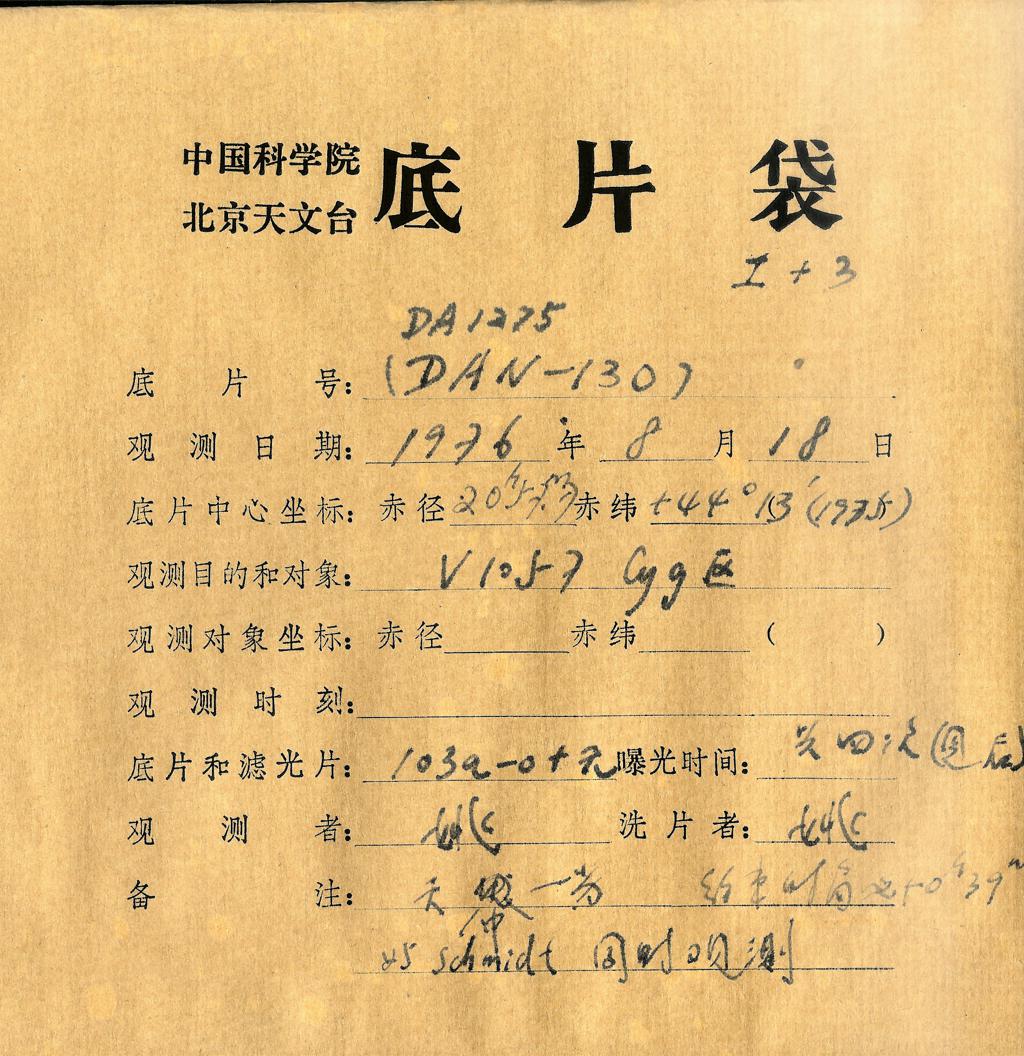 中国科学院
北京天文台
底片袋
I + 3
DA1275
底片号: (DAN-130)
观测日期: 1976年 8月 18日
底片中心坐标: 赤径 20ʰ57ᵐ 赤纬 +44°13′(1975)
观测目的和对象: V1057 Cyg 区
观测对象坐标: 赤径 赤纬 ( )
观测时刻:
底片和滤光片: 103a-0+无 曝光时间: 共四次(圆后)
观测者: 洗片者:
备注: 天 一等 结束时角 +0ʰ39ᵐ
与 Schmidt 同时观测